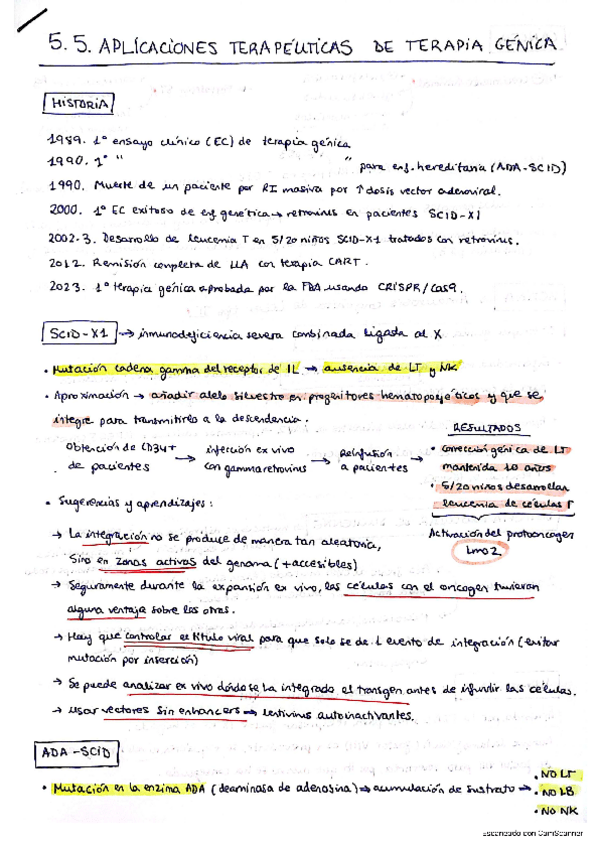 5.5. APLICACIONES TERAPEÚTICAS DE TERAPIA GÉNICA
HISTORIA
1989. 1º ensayo clínico (EC) de terapia génica
1990. 1º " " para enf. hereditaria (ADA-SCID)
1990. Muerte de un paciente por RI masiva por ↑ dosis vector adenoviral.
2000. 1º EC exitoso de enf. genética → retrovirus en pacientes SCID-X1
2002-3. Desarrollo de leucemia T en 5/20 niños SCID-X1 tratados con retrovirus.
2012. Remisión completa de LLA con terapia CART.
2023. 1º terapia génica aprobada por la FDA usando CRISPR/Cas9.
SCID-X1 → inmunodeficiencia severa combinada ligada al X
• Mutación cadena gamma del receptor de IL → ausencia de LT y NK
• Aproximación → añadir alelo silvestre en progenitores hematopoyéticos y que se
integre para transmitirlo a la descendencia.
RESULTADOS
Obtención de CD34+ de pacientes → infección ex vivo con gammaretrovirus → Reinfusión a pacientes
• corrección génica de LT
mantenida 10 años
• 5/20 niños desarrollan
leucemia de células T
Activación del protooncogen
Lmo2
• Sugerencias y aprendizajes:
→ La integración no se produce de manera tan aleatoria,
sino en zonas activas del genoma (+ accesibles)
→ Seguramente durante la expansión ex vivo, las células con el oncogen tuvieran
alguna ventaja sobre las otras.
→ Hay que controlar el título viral para que solo se de 1 evento de integración (evitar
mutación por inserción)
→ Se puede analizar ex vivo dónde se ha integrado el transgen antes de infundir las células.
→ Usar vectores sin enhancers → lentivirus autoinactivantes.
ADA-SCID
• Mutación en la enzima ADA (deaminasa de adenosina) → acumulación de sustrato →
• NO LT
• NO LB
• NO NK
Escaneado con CamScanner